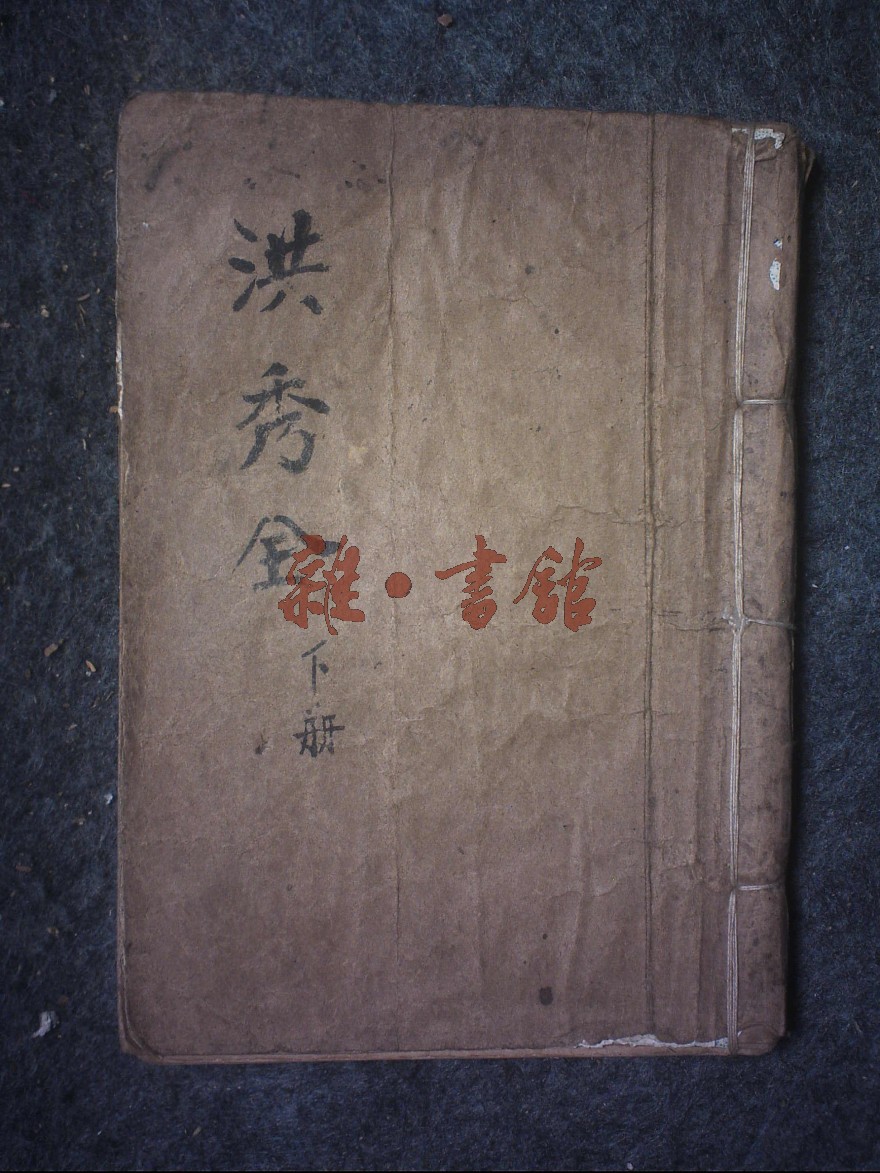 洪秀全
下册
雜·書館